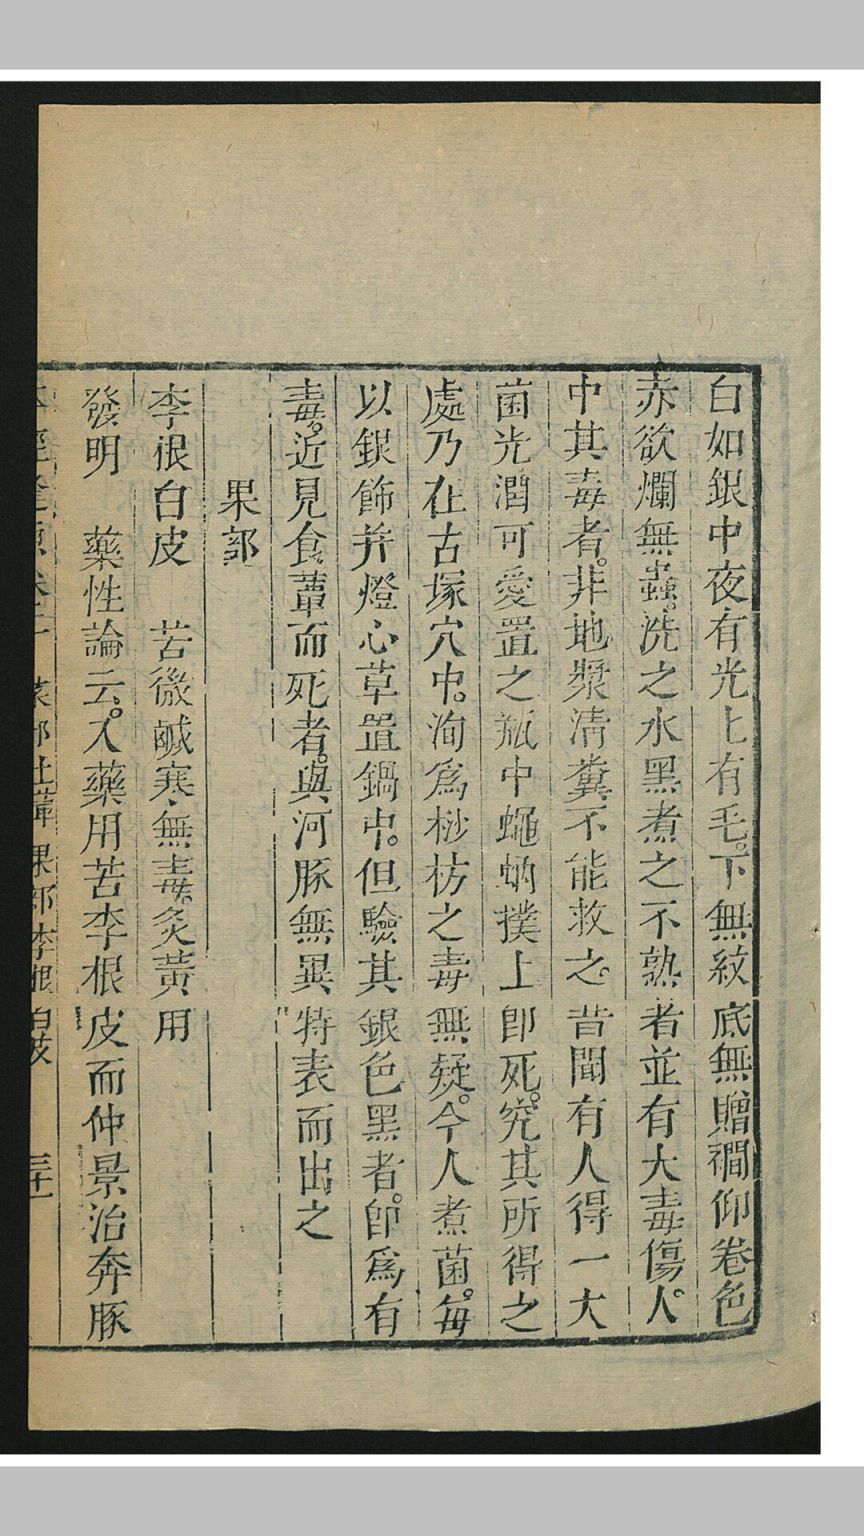 白如銀中夜有光上有毛。下無紋底無贈襉仰卷色
赤欲爛無蟲。洗之水黑煮之不熟者並有大毒傷人。
中其毒者。非地漿清糞不能救之。昔聞有人得一大
菌光潤可愛置之瓶中蠅蚋撲上即死。究其所得之
處乃在古塚穴中。洵爲桫枋之毒無疑。今人煮菌。每
以銀飾并燈心草置鍋中。但驗其銀色黑者。即爲有
毒。近見食蕈而死者。與河豚無異特表而出之
果部
李根白皮 苦微鹹寒無毒。炙黃用
發明 藥性論云。入藥用苦李根皮而仲景治奔豚
本經逢原卷三 菜部土蕈 果部李根白皮 三十一